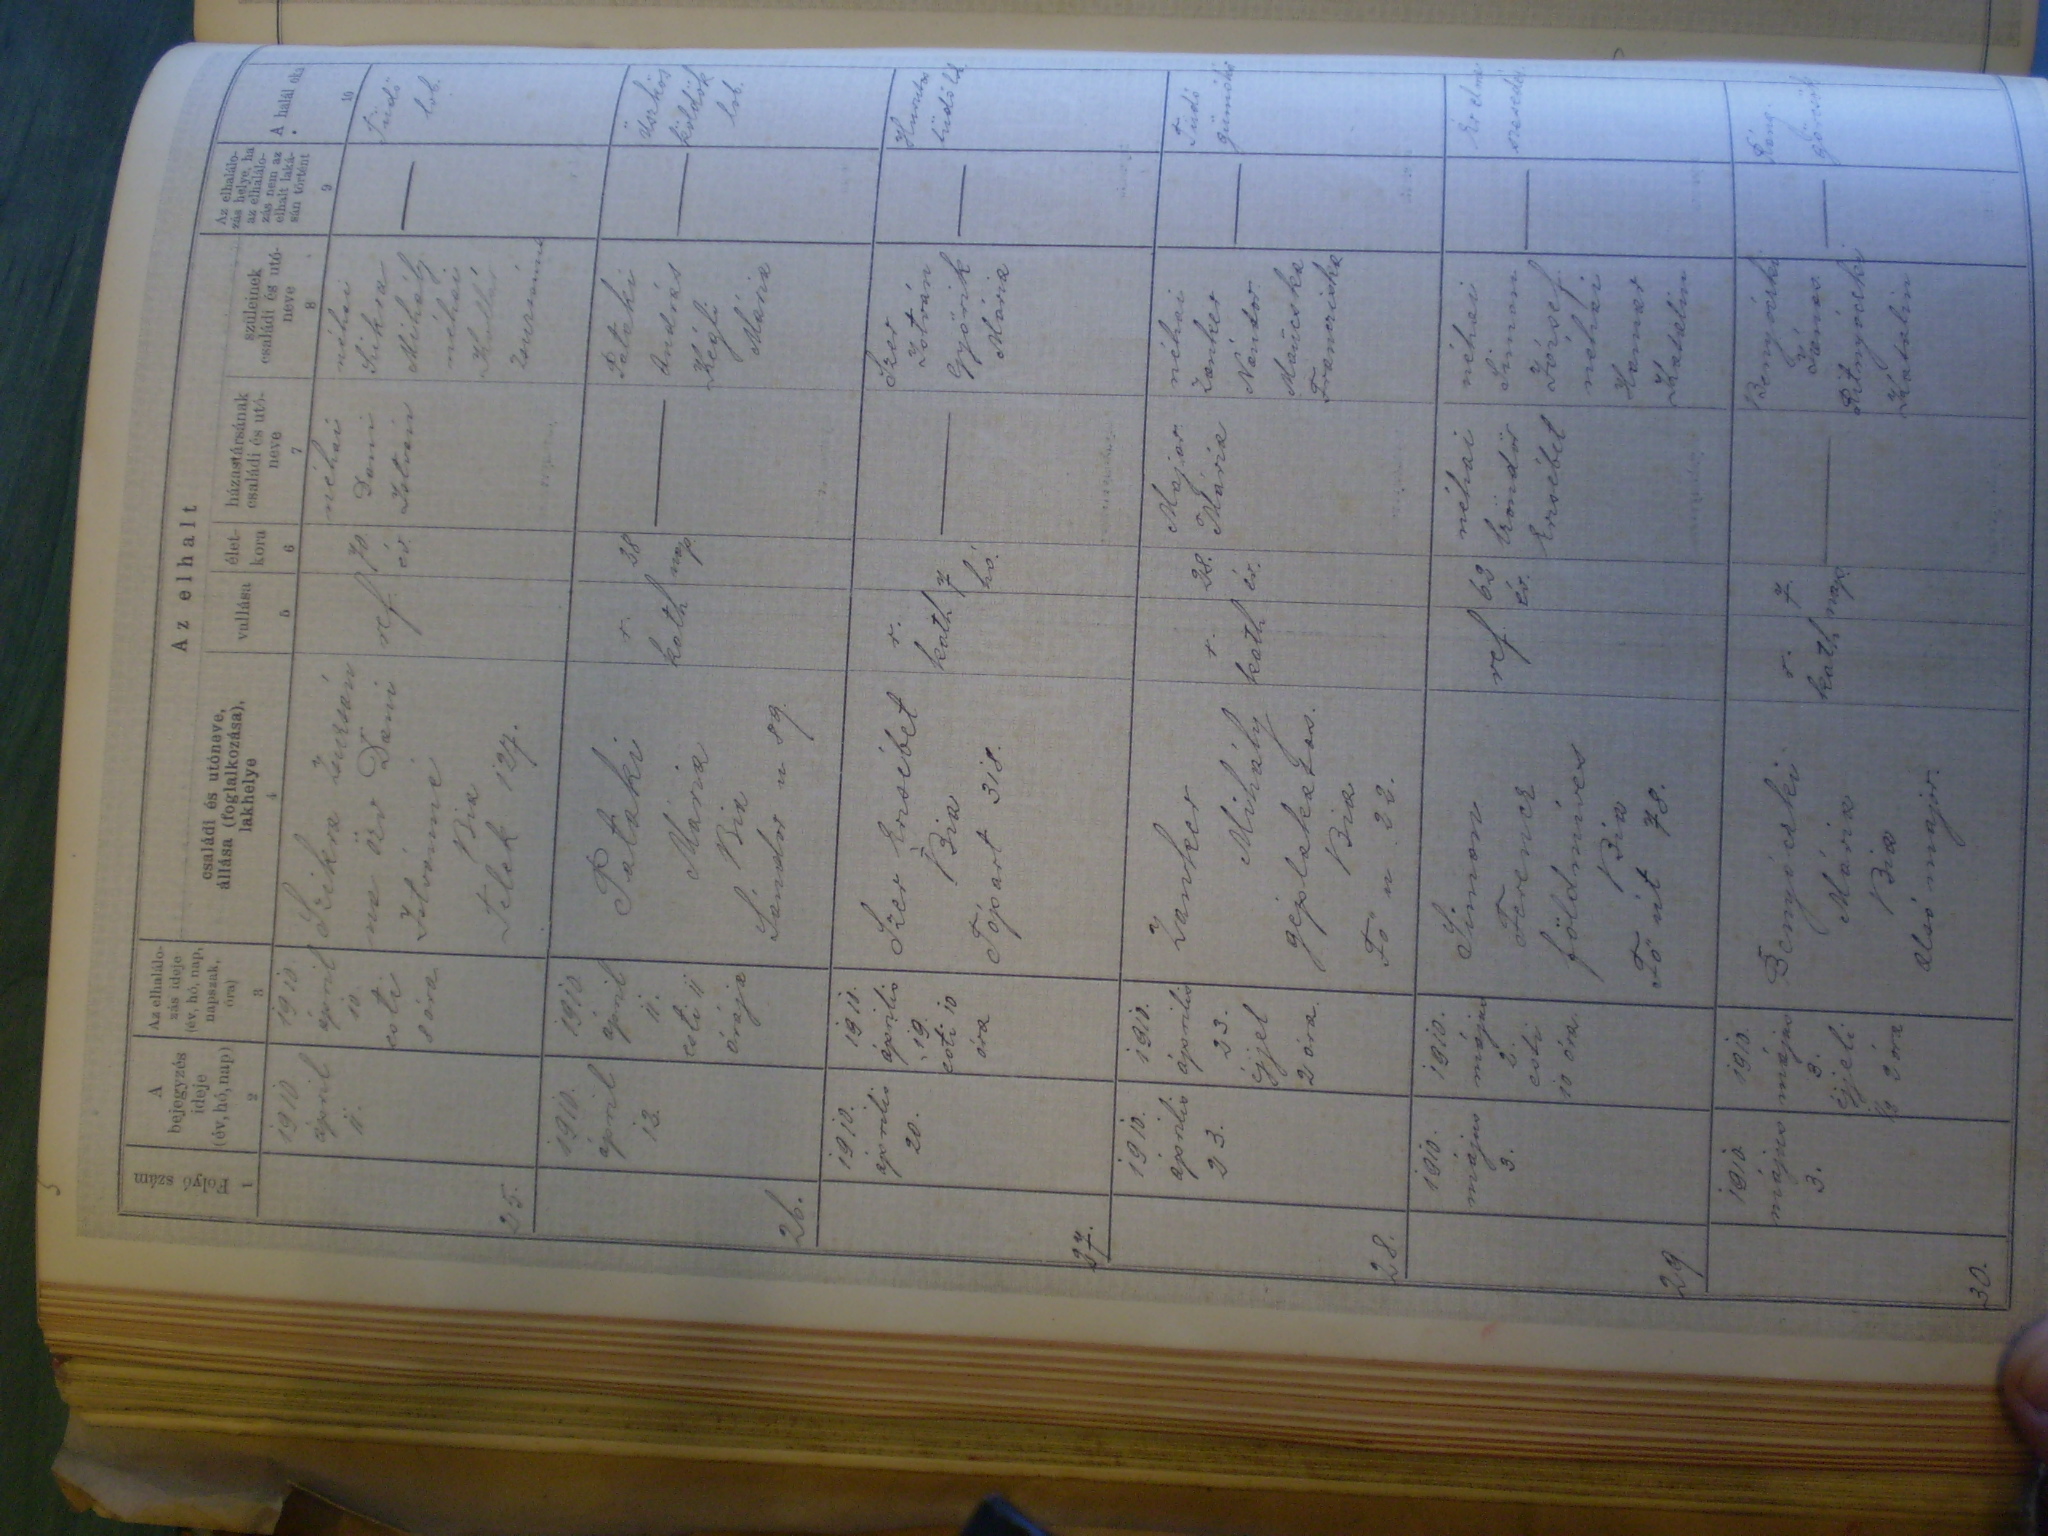 Az elhalt
Folyó szám
A
bejegyzés
ideje
(év, hó, nap)
Az elhalálo-
zás ideje
(év, hó, nap,
napszak,
óra)
családi és utóneve,
állása (foglalkozása),
lakhelye
vallása
élet-
kora
házastársának
családi és utó-
neve
szüleinek
családi és utó-
neve
Az elhalálo-
zás helye, ha
az elhalálo-
zás nem az
elhalt laká-
sán történt
A halál oka
1
2
3
4
5
6
7
8
9
10
25.
1910.
ápril
11.
1910.
ápril
10.
esti
8 óra
Dani
Istvánné
Bia
Telek 127.
ref.
70
év.
néhai
Dani
István
néhai
Mihály
néhai
Tüdő
lob.
26.
1910.
ápril
13.
1910.
ápril
11.
esti 11
órája
Pataki
Mária
Bia
Sándor u 89.
r.
kath
28
nap
Pataki
András
Mária
köldök
lob.
27.
1910.
április
20.
1910.
április
19.
esti 10
óra
Szer Erzsébet
Bia
Tópart 318.
r.
kath
7
hó.
Szer
István
Györik
Mária
28.
1910.
április
23.
1910.
április
23.
éjjel
2 óra.
Zanker
Mihály
géplakatos.
Bia
Fő u 22.
r.
kath
28.
év.
Major
Mária
néhai
Zanker
Nándor
Francziska
Tüdő
29
1910.
május
3.
1910.
május
2.
esti
10 óra.
Simon
Ferencz
földmíves
Bia
Fő út 78.
ref.
62
év.
néhai
Erzsébet
néhai
Simon
József
néhai
Katalin
30.
1910.
május
3.
1910.
május
3.
éjjeli
óra
Benyócski
Mária
Bia
alsó major.
r.
kath
7
nap.
Benyócski
János
Katalin